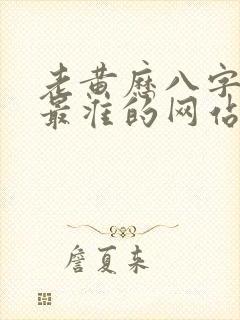 老黄历八字
最准的网站
詹夏来